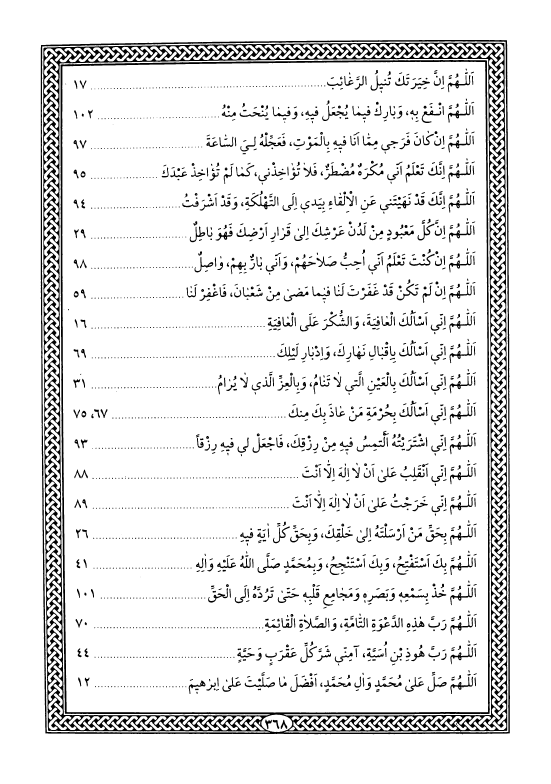 اَللّٰهُمَّ اِنَّ خِيَرَتَكَ تُنيلُ الرَّغٰائِبَ ........ ١٧
اَللّٰهُمَّ انْفَعْ بِهِ، وَبٰارِكْ فيمٰا يُجْعَلُ فيهِ، وَفيمٰا يُنْحَتُ مِنْهُ ........ ١٠٢
اَللّٰهُمَّ اِنْ كٰانَ فَرَجي مِمّٰا اَنَا فيهِ بِالْمَوْتِ، فَعَجِّلْهُ لِيَ السّٰاعَةَ ........ ٩٧
اَللّٰهُمَّ اِنَّكَ تَعْلَمُ اَنّي مُكْرَهٌ مُضْطَرٌّ، فَلاٰ تُؤٰاخِذْني، كَمٰا لَمْ تُؤٰاخِذْ عَبْدَكَ ........ ٩٥
اَللّٰهُمَّ اِنَّكَ قَدْ نَهَيْتَني عَنِ الْاِلْقٰاءِ بِيَدي اِلَى التَّهْلُكَةِ، وَقَدْ اَشْرَفْتُ ........ ٩٤
اَللّٰهُمَّ اِنَّ كُلَّ مَعْبُودٍ مِنْ لَدُنْ عَرْشِكَ اِلىٰ قَرٰارِ اَرْضِكَ فَهُوَ بٰاطِلٌ ........ ٢٩
اَللّٰهُمَّ اِنْ كُنْتَ تَعْلَمُ اَنّي اُحِبُّ صَلاٰحَهُمْ، وَاَنّي بٰارٌّ بِهِمْ، وٰاصِلٌ ........ ٩٨
اَللّٰهُمَّ اِنْ لَمْ تَكُنْ قَدْ غَفَرْتَ لَنٰا فيمٰا مَضىٰ مِنْ شَعْبٰانَ، فَاغْفِرْ لَنٰا ........ ٥٩
اَللّٰهُمَّ اِنّي اَسْأَلُكَ الْعٰافِيَةَ، وَالشُّكْرَ عَلَى الْعٰافِيَةِ ........ ١٦
اَللّٰهُمَّ اِنّي اَسْأَلُكَ بِاِقْبٰالِ نَهٰارِكَ، وَاِدْبٰارِ لَيْلِكَ ........ ٦٩
اَللّٰهُمَّ اِنّي اَسْأَلُكَ بِالْعَيْنِ الَّتي لاٰ تَنٰامُ، وَبِالْعِزِّ الَّذي لاٰ يُرٰامُ ........ ٣١
اَللّٰهُمَّ اِنّي اَسْأَلُكَ بِحُرْمَةِ مَنْ عٰاذَ بِكَ مِنْكَ ........ ٦٧، ٧٥
اَللّٰهُمَّ اِنّي اشْتَرَيْتُهُ اَلْتَمِسُ فيهِ مِنْ رِزْقِكَ، فَاجْعَلْ لي فيهِ رِزْقاً ........ ٩٣
اَللّٰهُمَّ اِنّي اَنْقَلِبُ عَلىٰ اَنْ لاٰ اِلٰهَ اِلاّٰ اَنْتَ ........ ٨٨
اَللّٰهُمَّ اِنّي خَرَجْتُ عَلىٰ اَنْ لاٰ اِلٰهَ اِلاّٰ اَنْتَ ........ ٨٩
اَللّٰهُمَّ بِحَقِّ مَنْ اَرْسَلْتَهُ اِلىٰ خَلْقِكَ، وَبِحَقِّ كُلِّ اٰيَةٍ فيهِ ........ ٢٦
اَللّٰهُمَّ بِكَ اَسْتَفْتِحُ، وَبِكَ اَسْتَنْجِحُ، وَبِمُحَمَّدٍ صَلَّى اللهُ عَلَيْهِ وَاٰلِهِ ........ ٤١
اَللّٰهُمَّ خُذْ بِسَمْعِهِ وَبَصَرِهِ وَمَجٰامِعِ قَلْبِهِ حَتّىٰ تَرُدَّهُ اِلَى الْحَقِّ ........ ١٠١
اَللّٰهُمَّ رَبَّ هٰذِهِ الدَّعْوَةِ التّٰامَّةِ، وَالصَّلاٰةِ الْقٰائِمَةِ ........ ٧٠
اَللّٰهُمَّ رَبَّ هُوذِ بْنِ اُسَيَّةِ، اٰمِنّي شَرَّ كُلِّ عَقْرَبٍ وَحَيَّةٍ ........ ٤٤
اَللّٰهُمَّ صَلِّ عَلىٰ مُحَمَّدٍ وَاٰلِ مُحَمَّدٍ، اَفْضَلَ مٰا صَلَّيْتَ عَلىٰ اِبرٰهيمَ ........ ١٢
٣٦٨